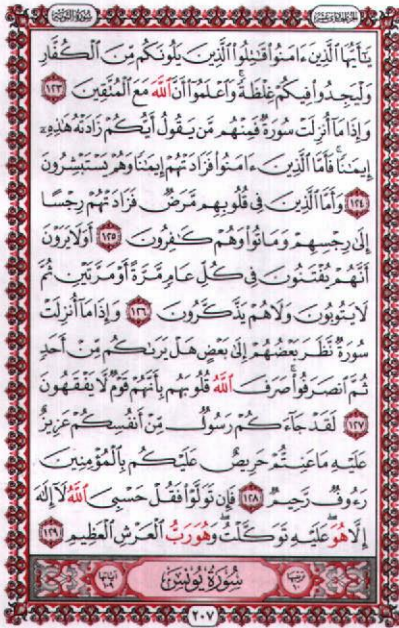 سورة التوبة
الجزء الحادي عشر
يَٰٓأَيُّهَا ٱلَّذِينَ ءَامَنُوا۟ قَٰتِلُوا۟ ٱلَّذِينَ يَلُونَكُم مِّنَ ٱلْكُفَّارِ
وَلْيَجِدُوا۟ فِيكُمْ غِلْظَةً ۚ وَٱعْلَمُوٓا۟ أَنَّ ٱللَّهَ مَعَ ٱلْمُتَّقِينَ ١٢٣
وَإِذَا مَآ أُنزِلَتْ سُورَةٌ فَمِنْهُم مَّن يَقُولُ أَيُّكُمْ زَادَتْهُ هَٰذِهِۦٓ
إِيمَٰنًا ۚ فَأَمَّا ٱلَّذِينَ ءَامَنُوا۟ فَزَادَتْهُمْ إِيمَٰنًا وَهُمْ يَسْتَبْشِرُونَ
١٢٤ وَأَمَّا ٱلَّذِينَ فِى قُلُوبِهِم مَّرَضٌ فَزَادَتْهُمْ رِجْسًا
إِلَىٰ رِجْسِهِمْ وَمَاتُوا۟ وَهُمْ كَٰفِرُونَ ١٢٥ أَوَلَا يَرَوْنَ
أَنَّهُمْ يُفْتَنُونَ فِى كُلِّ عَامٍ مَّرَّةً أَوْ مَرَّتَيْنِ ثُمَّ
لَا يَتُوبُونَ وَلَا هُمْ يَذَّكَّرُونَ ١٢٦ وَإِذَا مَآ أُنزِلَتْ
سُورَةٌ نَّظَرَ بَعْضُهُمْ إِلَىٰ بَعْضٍ هَلْ يَرَىٰكُم مِّنْ أَحَدٍ
ثُمَّ ٱنصَرَفُوا۟ ۚ صَرَفَ ٱللَّهُ قُلُوبَهُم بِأَنَّهُمْ قَوْمٌ لَّا يَفْقَهُونَ
١٢٧ لَقَدْ جَآءَكُمْ رَسُولٌ مِّنْ أَنفُسِكُمْ عَزِيزٌ
عَلَيْهِ مَا عَنِتُّمْ حَرِيصٌ عَلَيْكُم بِٱلْمُؤْمِنِينَ
رَءُوفٌ رَّحِيمٌ ١٢٨ فَإِن تَوَلَّوْا۟ فَقُلْ حَسْبِىَ ٱللَّهُ لَآ إِلَٰهَ
إِلَّا هُوَ ۖ عَلَيْهِ تَوَكَّلْتُ ۖ وَهُوَ رَبُّ ٱلْعَرْشِ ٱلْعَظِيمِ ١٢٩
ترتيبها ١٠
سُورَةُ يُونُسَ
آياتها ١٠٩
٢٠٧